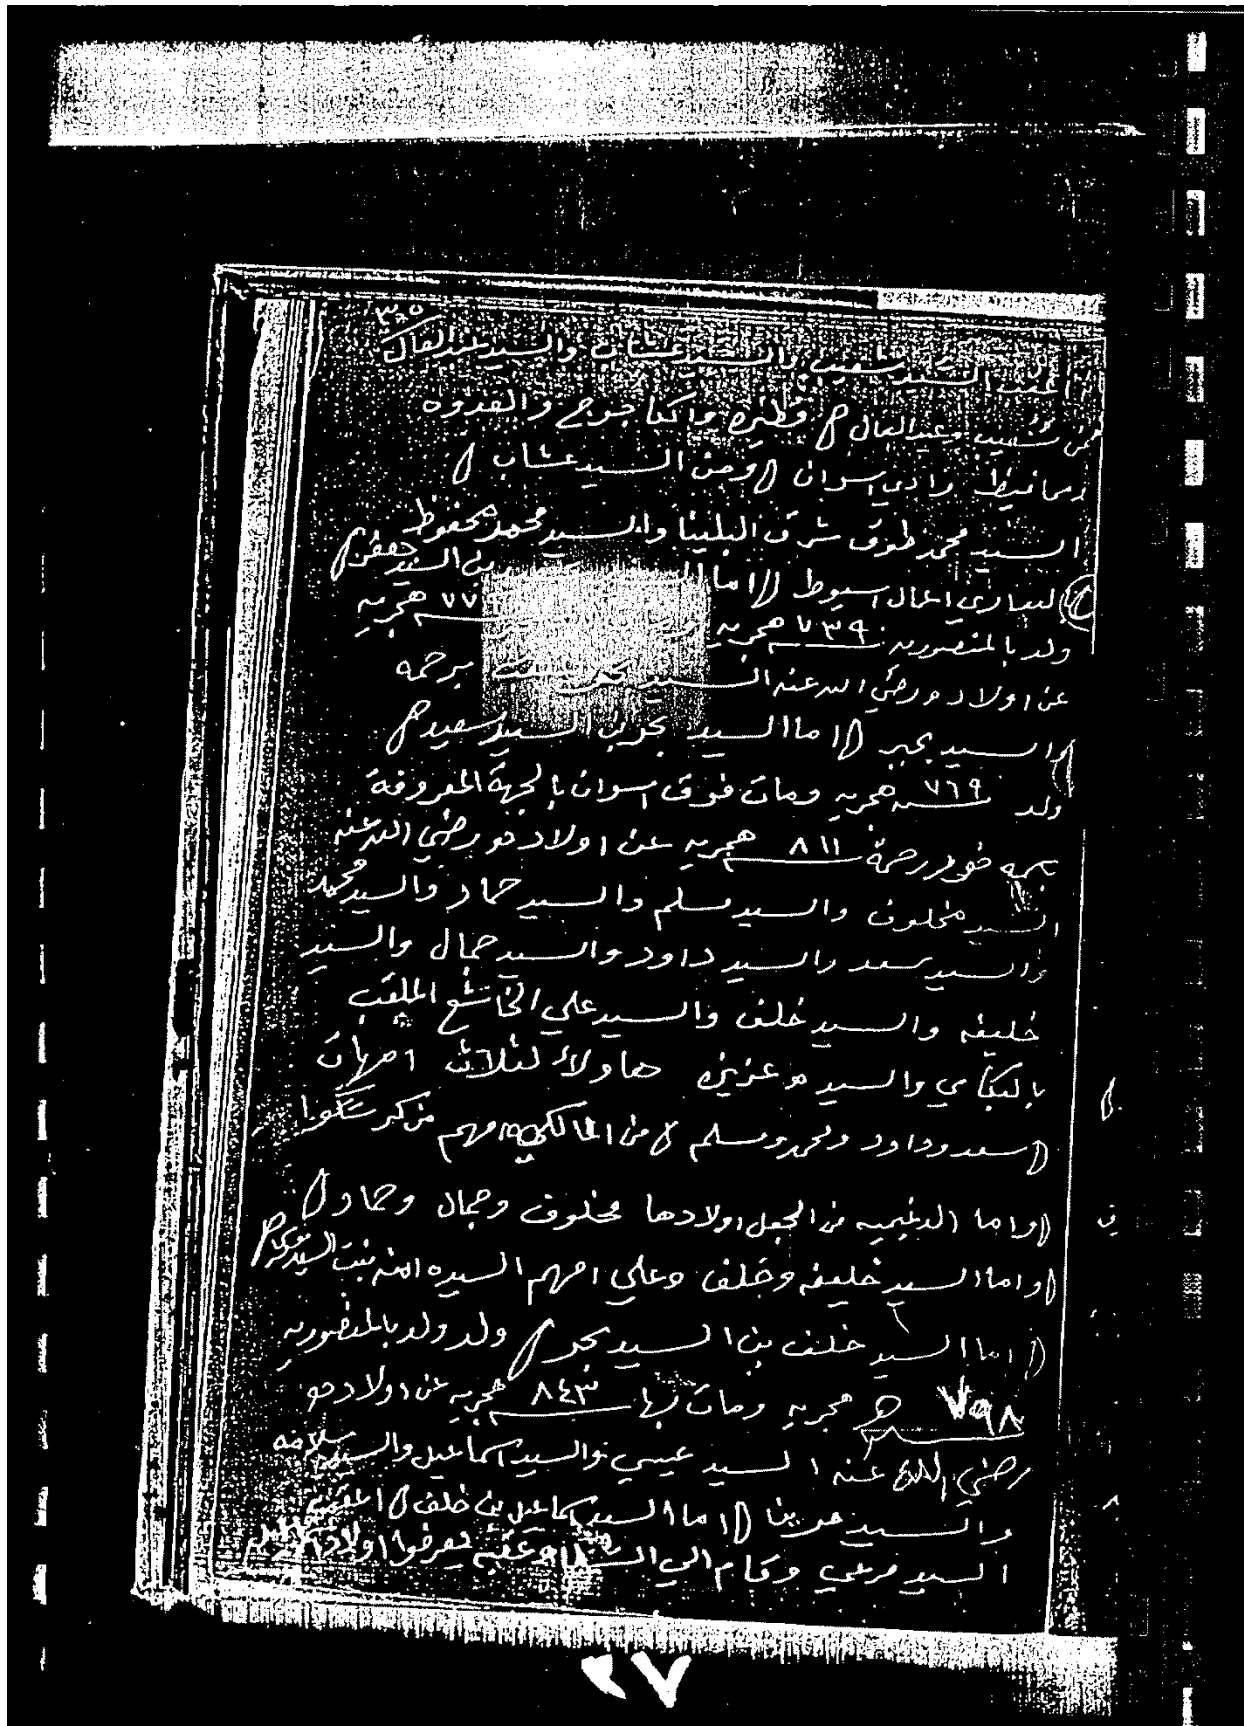 ٣٠٥
السيد شعيب والسيد عشاب والسيد عبدالعال
شعيب وعبدالعال قطيره واكتا جوج والغدوه
وادي اسوان ومن السيد عشاب
السيد محمد طوق شرق البلينا والسيد محمد محفوظ
اعمال اسيوط اما بن السيد جعفر
ولد بالمنصوريه ٧٣٩ هجريه ٧٧ هجريه
عن اولاده ورضي الله عنه السيد برحمه
والسيد بحير اما السيد بحر بن السيد سعيد
ولد ٧٦٩ هجريه ومات فوق اسوان بالجهة المعروفة
خور رحمة ٨١١ هجريه عن اولاد هو رضي الله عنه
السيد مخلوف والسيد مسلم والسيد حماد والسيد محمد
والسيد سعد والسيد داود والسيد جمال والسيد
خليفه والسيد خلف والسيد علي الخاشع الملقب
بالبكاي والسيده عزيزه هاولاء لثلاث امهات
سعد وداود ومحمد ومسلم من المالكيه امهم من كرسكوا
واما من الجعل اولادها مخلوف وجمال وحماد
واما السيد خليفه وخلف وعلي امهم السيده امنه بنت السيد
اما السيد خلف بن السيد بحر ولد ولد بالمنصوريه
٧٩٨ هجريه ومات بها ٨٤٣ هجريه عن اولاد هو
رضي الله عنه السيد عيسي والسيد اسماعيل والسيد سلامه
والسيد اما السيد اسماعيل بن خلف اعقب
السيد مرعي الي عقبه يعرفوا اولاد
٢٧